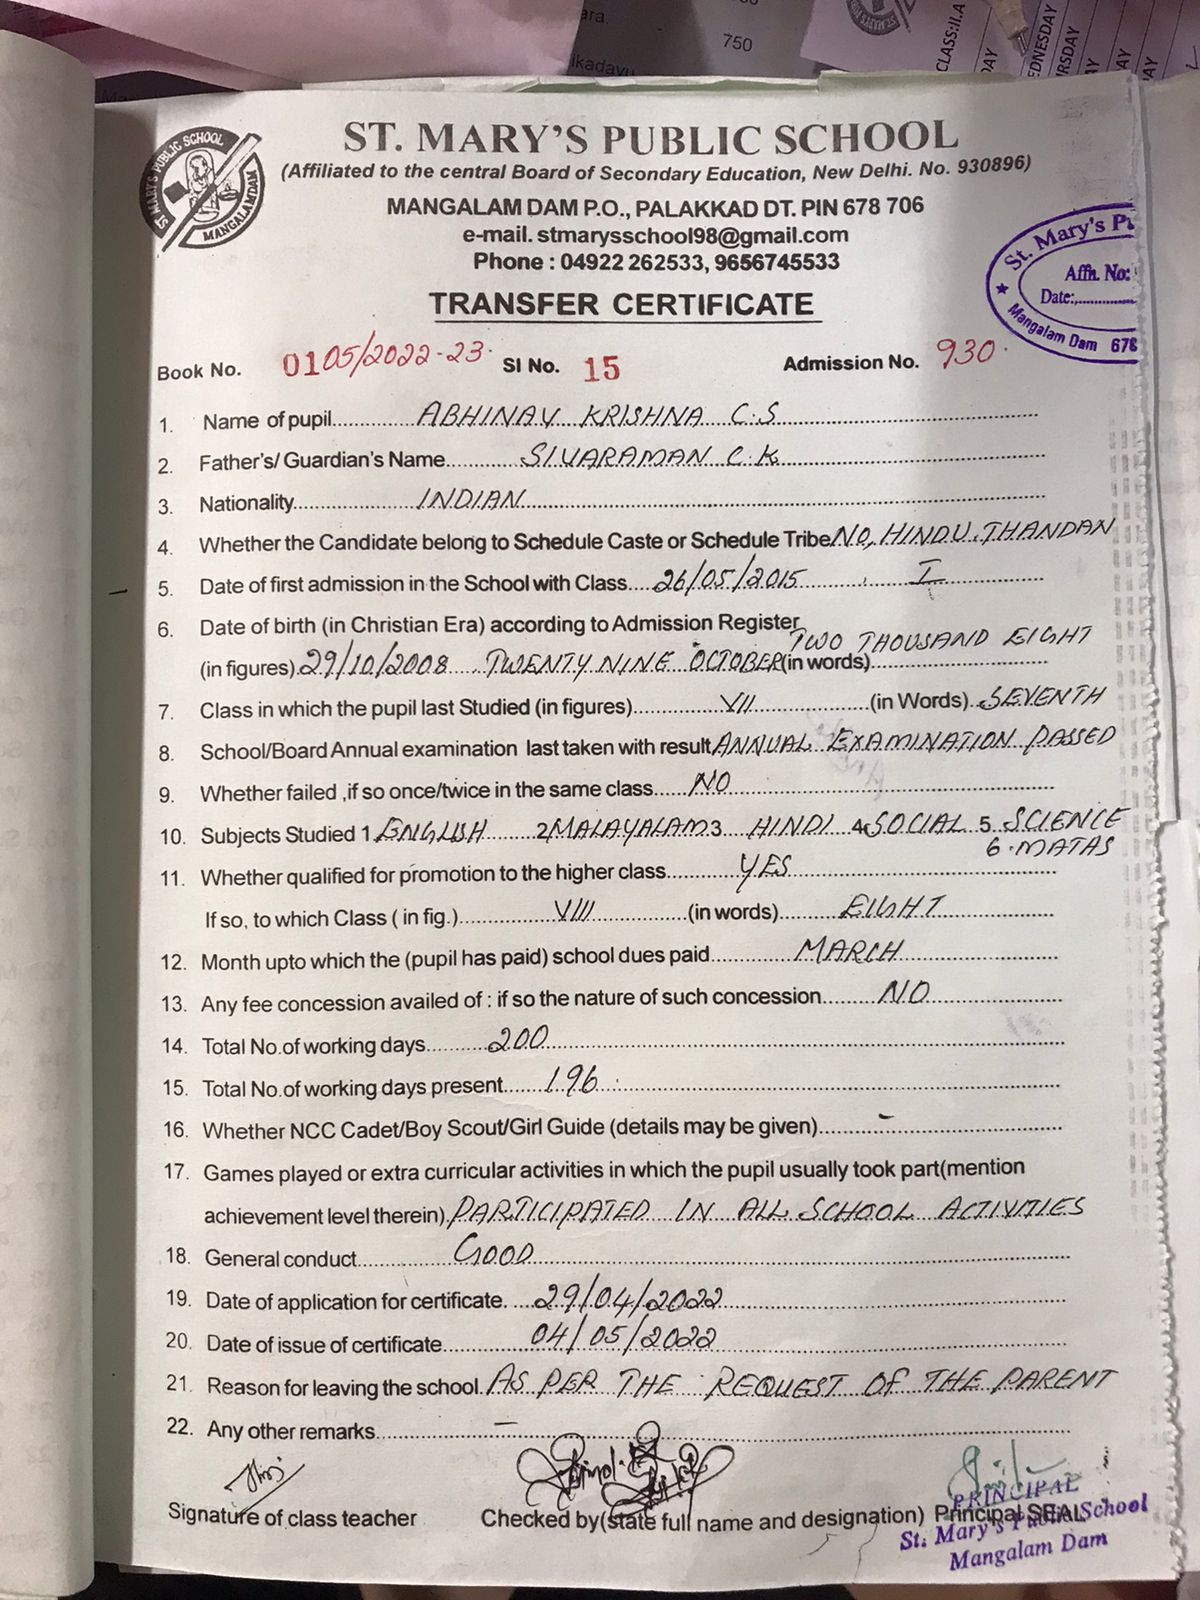 ara.
750
lkadavu
CLASS:II.A
DAY
EDNESDAY
RSDAY
AY
AY
AY
ST. MARY'S PUBLIC SCHOOL
MANGALAMDAM
ST. MARY'S PUBLIC SCHOOL
(Affiliated to the central Board of Secondary Education, New Delhi. No. 930896)
MANGALAM DAM P.O., PALAKKAD DT. PIN 678 706
e-mail. stmarysschool98@gmail.com
Phone : 04922 262533, 9656745533
St. Mary's Pu
Affn. No:
Date:
Mangalam Dam 678
TRANSFER CERTIFICATE
Book No. 0105/2022-23. SI No. 15 Admission No. 930.
1. Name of pupil ABHINAV KRISHNA C.S
2. Father's/ Guardian's Name SIVARAMAN C.K
3. Nationality INDIAN
4. Whether the Candidate belong to Schedule Caste or Schedule Tribe NO, HINDU, THANDAN
5. Date of first admission in the School with Class 26/05/2015, I
6. Date of birth (in Christian Era) according to Admission Register
TWO THOUSAND EIGHT
(in figures) 29/10/2008 TWENTY NINE OCTOBER (in words)
7. Class in which the pupil last Studied (in figures) VII (in Words) SEVENTH
8. School/Board Annual examination last taken with result ANNUAL EXAMINATION PASSED
9. Whether failed ,if so once/twice in the same class NO
10. Subjects Studied 1 ENGLISH 2 MALAYALAM 3 HINDI 4 SOCIAL 5 SCIENCE
6. MATAS
11. Whether qualified for promotion to the higher class YES
If so, to which Class ( in fig.) VIII (in words) EIGHT
12. Month upto which the (pupil has paid) school dues paid MARCH
13. Any fee concession availed of : if so the nature of such concession NO
14. Total No.of working days 200
15. Total No.of working days present 196
16. Whether NCC Cadet/Boy Scout/Girl Guide (details may be given) -
17. Games played or extra curricular activities in which the pupil usually took part(mention
achievement level therein) PARTICIPATED IN ALL SCHOOL ACTIVITIES
18. General conduct GOOD
19. Date of application for certificate. 29/04/2022
20. Date of issue of certificate 04/05/2022
21. Reason for leaving the school. AS PER THE REQUEST OF THE PARENT
22. Any other remarks —
Signature of class teacher Checked by(state full name and designation) Principal SEAL
PRINCIPAL
St. Mary's Public School
Mangalam Dam